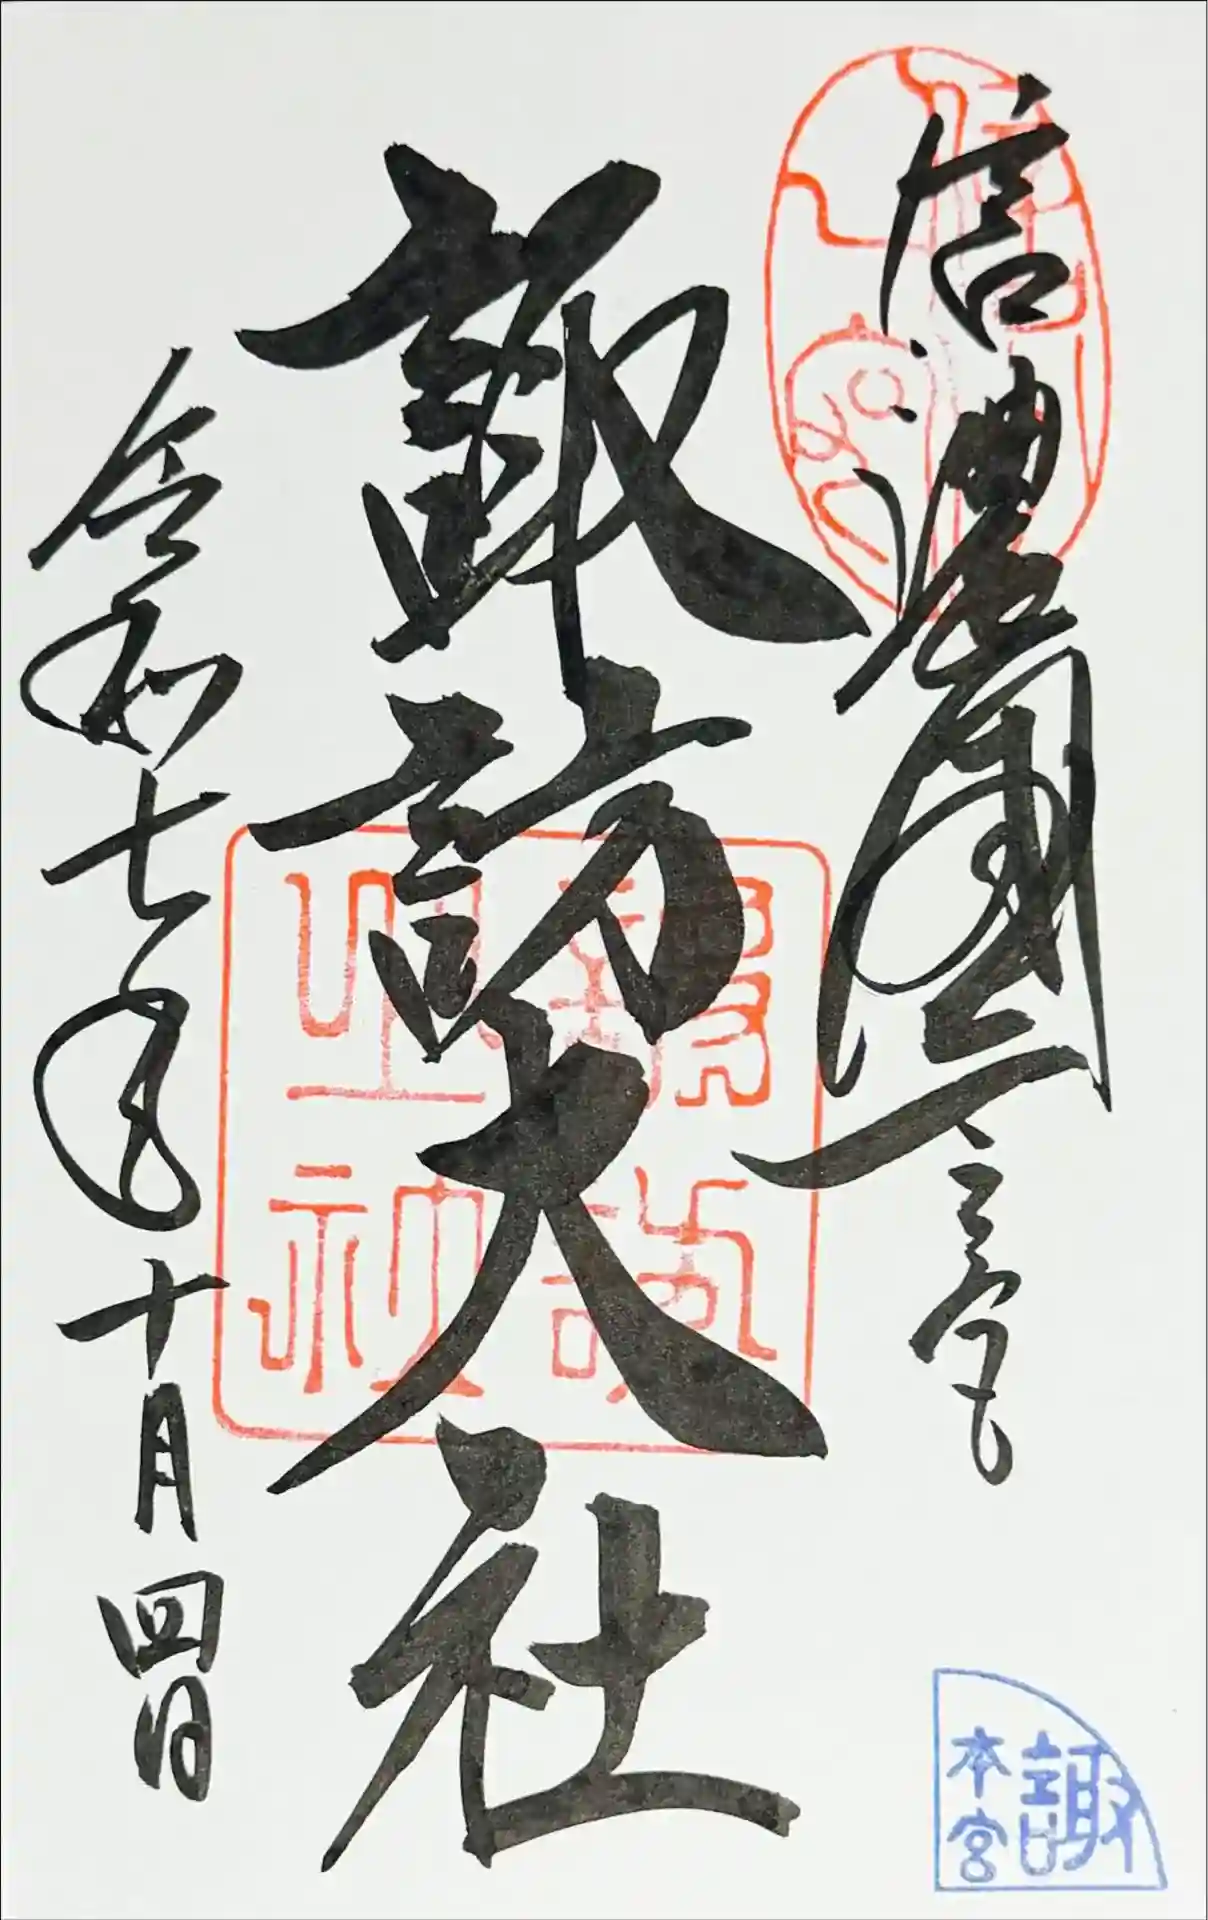 信濃國一之宮
諏訪大社
令和七年十月四日
諏
本宮